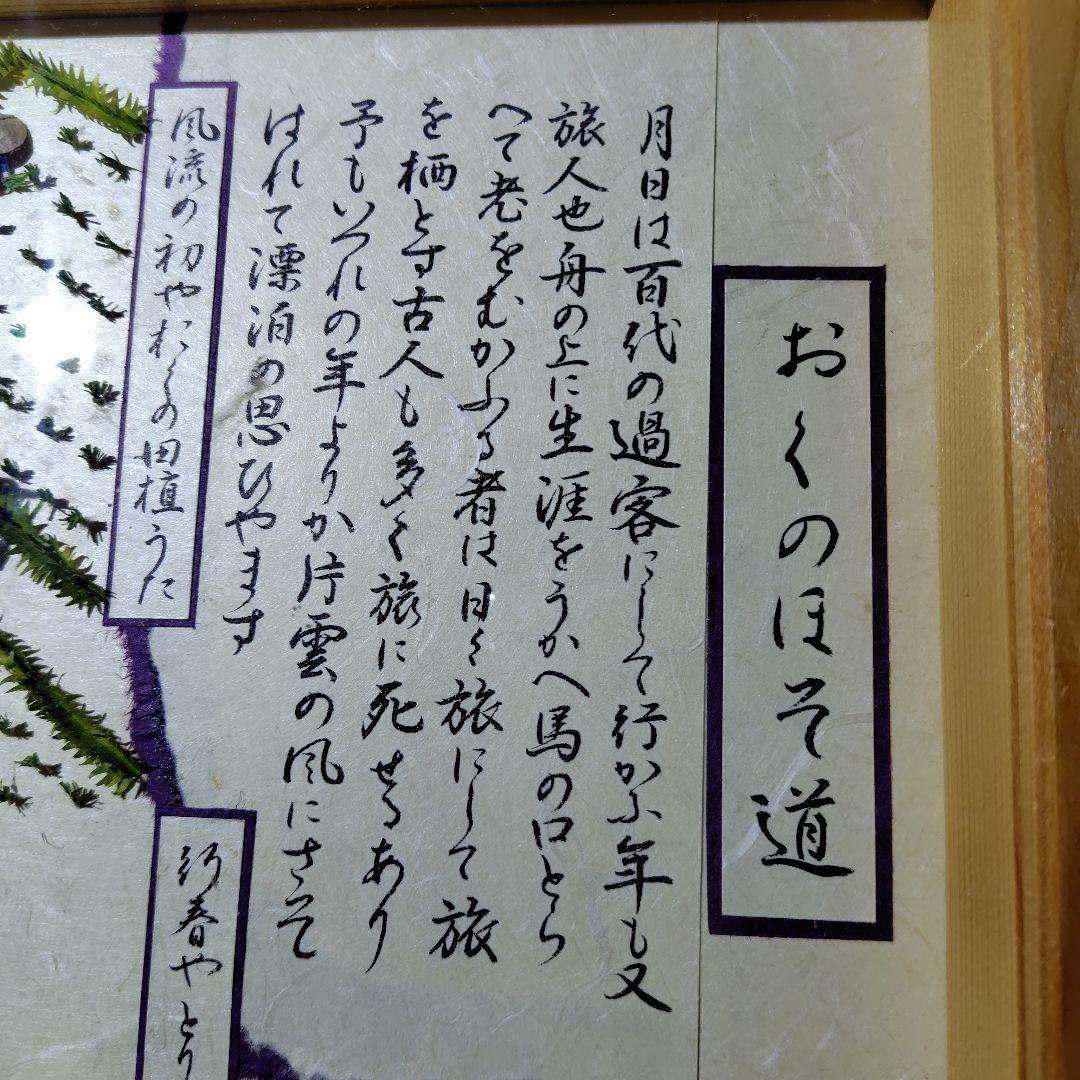 おくのほそ道
月日は百代の過客にして行かふ年も又
旅人也舟の上に生涯をうかへ馬の口とら
へて老をむかふる者は日々旅にして旅
を栖とす古人も多く旅に死せるあり
予もいつれの年よりか片雲の風にさそ
はれて漂泊の思ひやます
風流の初やおくの田植うた
行春やとり